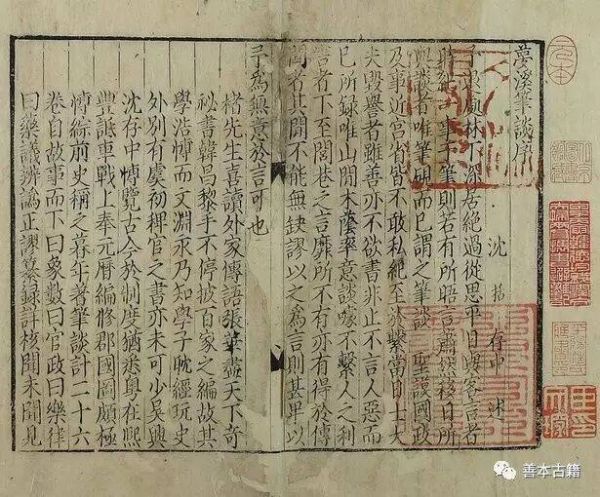 夢溪筆談序
沈 括 存中 述
予退處林下深居絕過從思平日與客言者
時紀一事於筆則若有所晤言蕭然移日所
與談者唯筆硯而已謂之筆談 聖謨國政
及事近宮省皆不敢私紀至於繫當日士大
夫毀譽者雖善亦不欲書非止不言人惡而
已所録唯山間木蔭率意談噱不繫人之利
害者下至閭巷之言靡所不有亦有得於傳
聞者其間不能無缺謬以之爲言則甚卑以
予爲無意於言可也
褚先生喜讀外家傳語張華號天下奇
祕書韓昌黎手不停披百家之編故其
學浩博而文淵永乃知學子耽經玩史
外別有虞初稗官之書亦未可少吳興
沈存中博覽古今於制度猶悉粵在熙
豐詆車戰上奉元曆編修郡國圖頗極
博綜前史稱之暮年著筆談計二十六
卷自故事而下曰象數曰官政曰樂律
曰藥議辨譌正謬纂録詳核聞未聞見
善本古籍